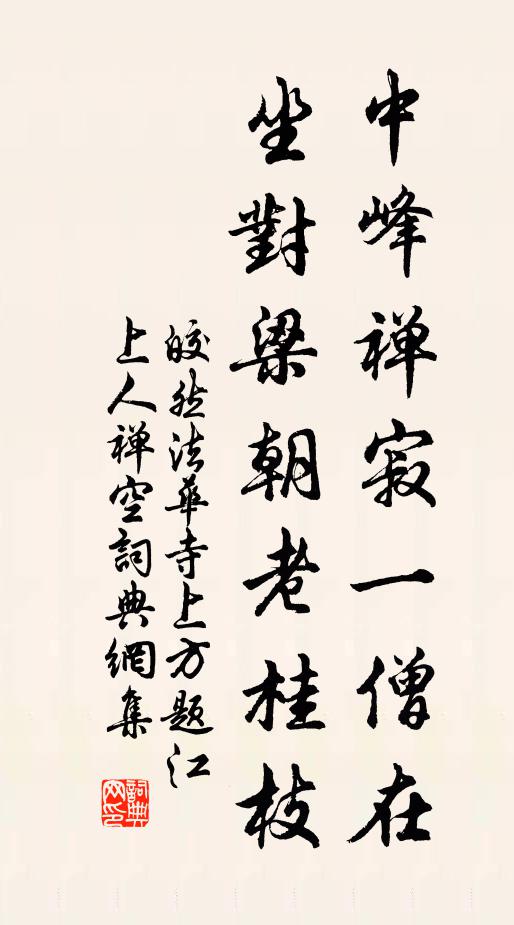 中峰禅寂一僧在
坐對梁朝老桂枝
皎然法華寺上方題江
上人禅空詞典網集
詞典網印